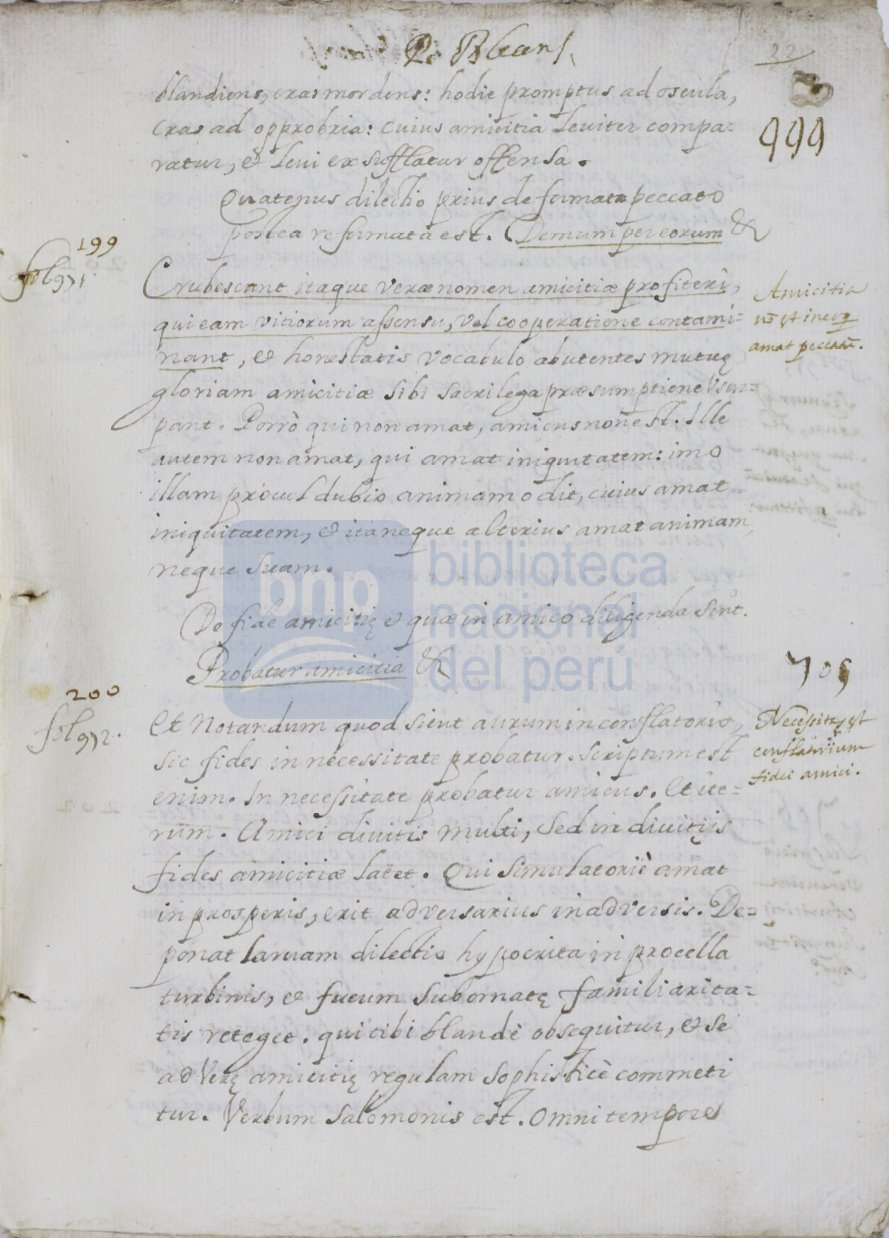 De Blean
22
999
blandiens, cras mordens: hodie promptus ad oscula,
cras ad opprobria: cuius amicitia leviter compa-
ratur, et levi exsufflatur offensa.
Quatenus dilectio prius deformata peccato
postea reformata est. Demum per eorum &
199
fol 971.
Erubescant itaque veræ nomen amicitiæ profiteri,
qui eam vitiorum assensu, vel cooperatione contami-
nant, et honestatis vocabulo abutentes mutuę
gloriam amicitiæ sibi sacrilega præsumptione Usur-
pant. Porrò qui non amat, amicus non est. Ille
autem non amat, qui amat iniquitatem: imo
illam procul dubio animam odit, cuius amat
iniquitatem, et ita neque alterius amat animam,
neque suam.
Amicitia
amat peccatũ.
De fide amicitię et quæ in amico diligenda sint.
Probatur amicitia &
200
fol 972.
Et Notandum quod sicut aurum in conflatorio,
sic fides in necessitate probatur. Scriptum est
enim. In necessitate probatur amicus. Et ite-
rum. Amici divitis multi, sed in divitijs
fides amicitiæ latet. Qui simulatoriè amat
in prosperis, erit adversarius in adversis. De-
ponat larvam dilectio hypocrita in procella
turbinis, et fucum subornatę familiarita-
tis reteget. qui tibi blandè obsequitur, et se
ad verę amicitię regulam sophisticè commeti
tur. Verbum Salomonis est. Omni tempore
705
Necessitas est
conflatorium
fidei amici.
bnp biblioteca
nacional
del perú